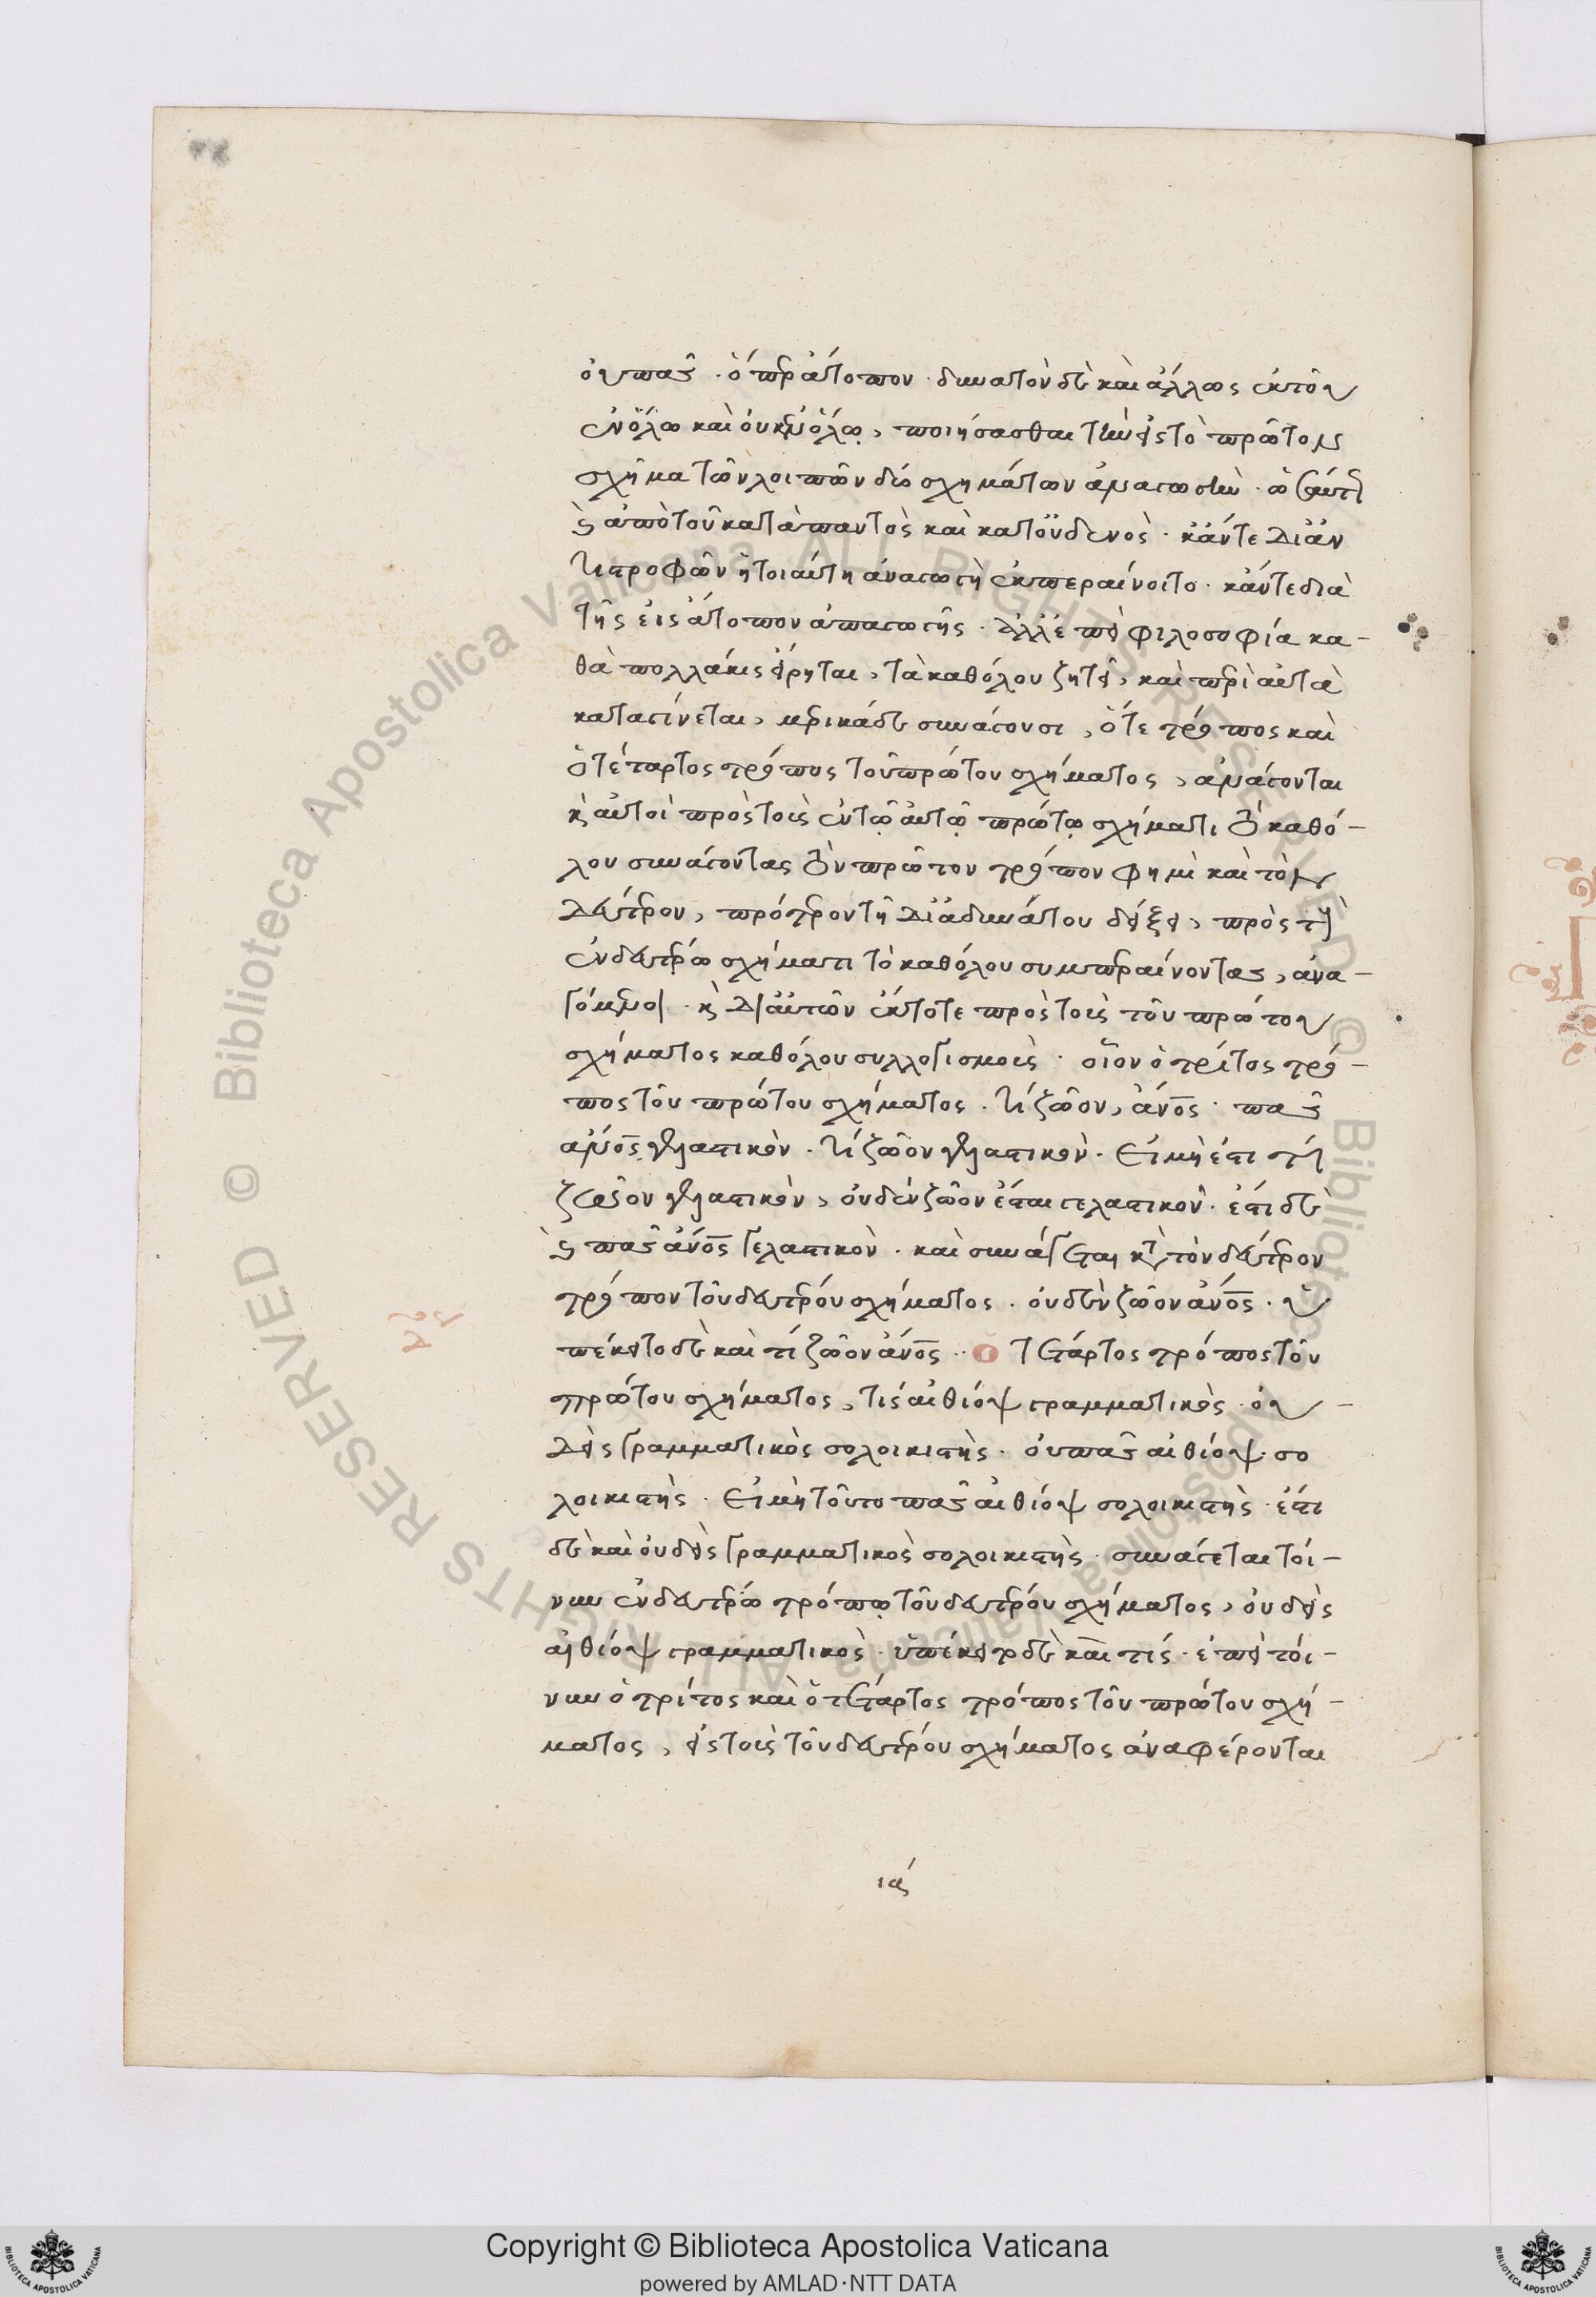 οὐ πᾶς · ὅπερ ἄτοπον · δυνατὸν δὲ καὶ ἄλλως ἐκ τοῦ
ἐν ὅλω καὶ οὐκ ἐν ὅλῳ, ποιήσασθαι τὴν εἰς τὸ πρῶτον
σχῆμα τῶν λοιπῶν δύο σχημάτων ἀναγωγὴν ·
ἀπὸ τοῦ κατὰ παντὸς καὶ κατ οὐδενός · κἄντε δι ἀν
τιστροφῶν ἡ τοιαύτη ἀναγωγὴ ἐκπεραίνοιτο · κἄντε διὰ
τῆς εἰς ἄτοπον ἀπαγωγῆς · ἀλλ ἐπεὶ φιλοσοφία κα-
θὰ πολλάκις εἴρηται, τὰ καθόλου ζητεῖ, καὶ περὶ αὐτὰ
καταγίνεται, μερικὰ δὲ συνάγουσι, ὅ τε τρίτος καὶ
ὁ τέταρτος τρόπος τοῦ πρώτου σχήματος, ἀνάγονται
κ αὐτοὶ πρὸς τοὺς ἐν τῷ αὐτῷ πρώτῳ σχήματι τὸ καθό-
λου συνάγοντας τὸν πρῶτον τρόπον φημὶ καὶ τὸν
δεύτερον, πρότερον τῇ δι ἀδυνάτου δείξει, πρὸς τοὺς
ἐν δευτέρω σχήματι τὸ καθόλου συμπεραίνοντας, ἀνα-
γόμενοι · κ δι αὐτῶν ἔκτοτε πρὸς τοὺς τοῦ πρώτου
σχήματος καθόλου συλλογισμούς · οἷον ὁ τρίτος τρό-
πος τοῦ πρώτου σχήματος · τὶ ζῶον, ἄνος · πᾶς
ἄνος γελαστικόν · τὶ ζῶον γελαστικόν · Εἰ μὴ ἔστι τὶ
ζῶον γελαστικὸν, οὐδὲν ζῶον ἔσται γελαστικόν · ἔστι δὲ
κ πᾶς ἄνος γελαστικόν · καὶ συνάγεται κτ τὸν δεύτερον
τρόπον τοῦ δευτέρου σχήματος · οὐδὲν ζῶον ἄνος · ὑ
πέκειτο δὲ καὶ τὶ ζῶον ἄνος · Ὁ τέταρτος τρόπος τοῦ
πρώτου σχήματος, τὶς αἰθίοψ γραμματικὸς · οὐ-
δεὶς γραμματικὸς σολοικιστής · οὐ πᾶς αἰθίοψ σο
λοικιστής · Εἰ μὴ τοῦτο πᾶς αἰθίοψ σολοικιστής · ἔστι
δὲ καὶ οὐδεὶς γραμματικὸς σολοικιστής · συνάγεται τοί-
νυν ἐν δευτέρω τρόπῳ τοῦ δευτέρου σχήματος, οὐδεὶς
αἰθίοψ γραμματικὸς · ὑπέκειτο δὲ καὶ τίς · ἐπεὶ τοί-
νυν ὁ τρίτος καὶ ὁ τέταρτος τρόπος τοῦ πρώτου σχή-
ματος, εἰς τοὺς τοῦ δευτέρου σχήματος ἀναφέρονται
ιας
© Biblioteca Apostolica Vaticana ALL RIGHTS RESERVED
Copyright © Biblioteca Apostolica Vaticana
powered by AMLAD·NTT DATA